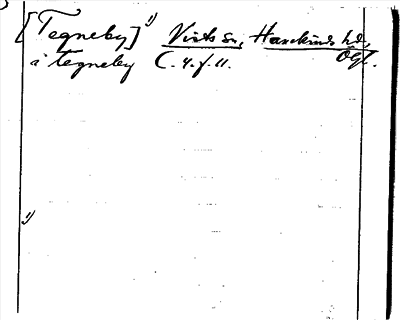 [Tegneby] 1) Vists sn, Hanekinds hd,
Ögl.
i Tegneby C. 4. f. 11.
1)